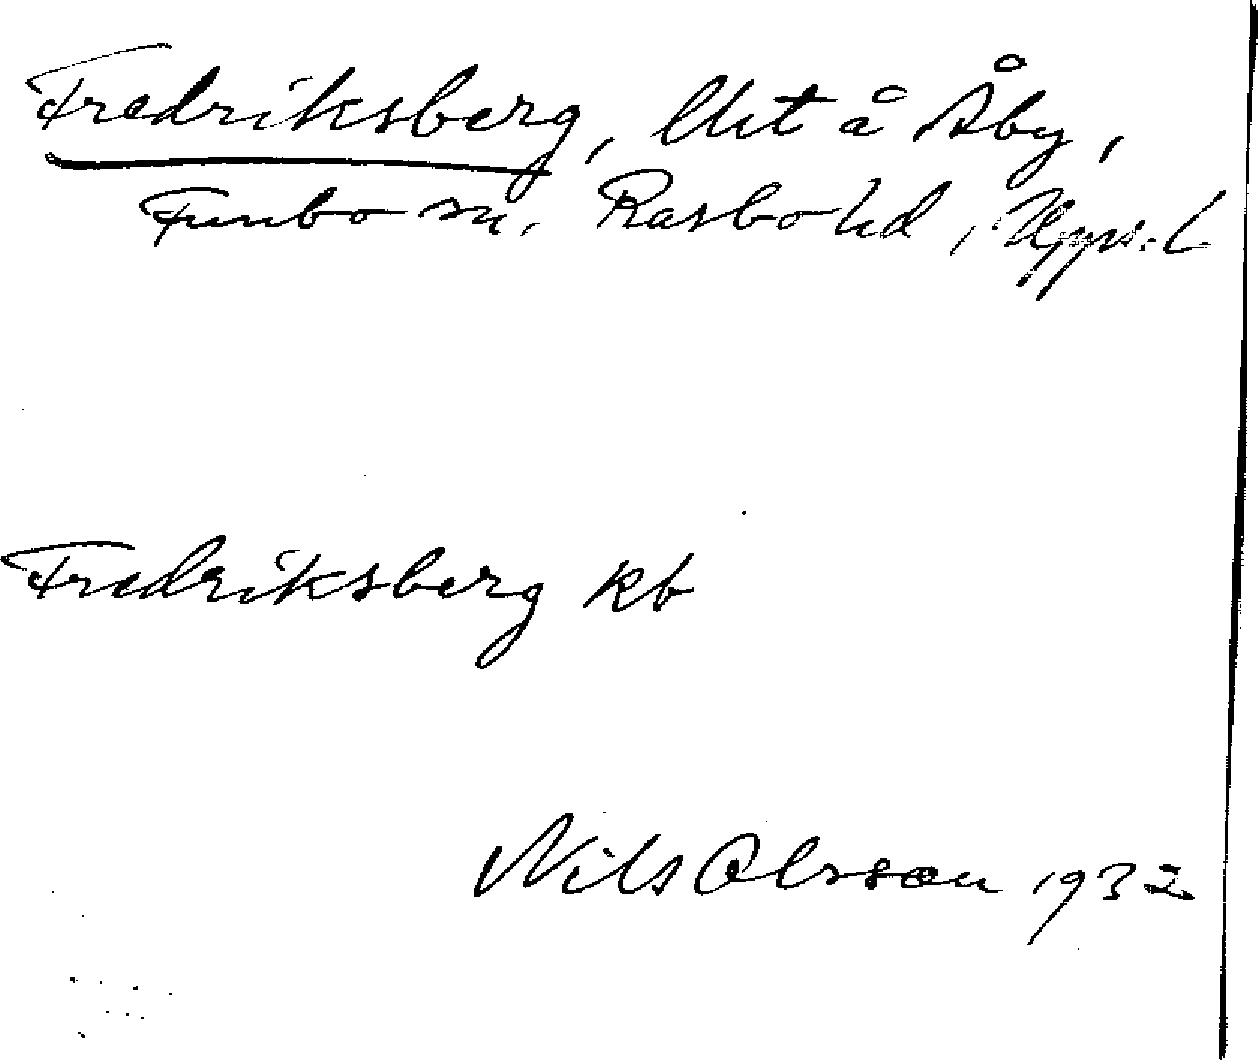 Fredriksberg, lht å Åby,
Funbo sn. Rasbo hd, Upps. l
Fredriksberg kb
Nils Olsson 1932